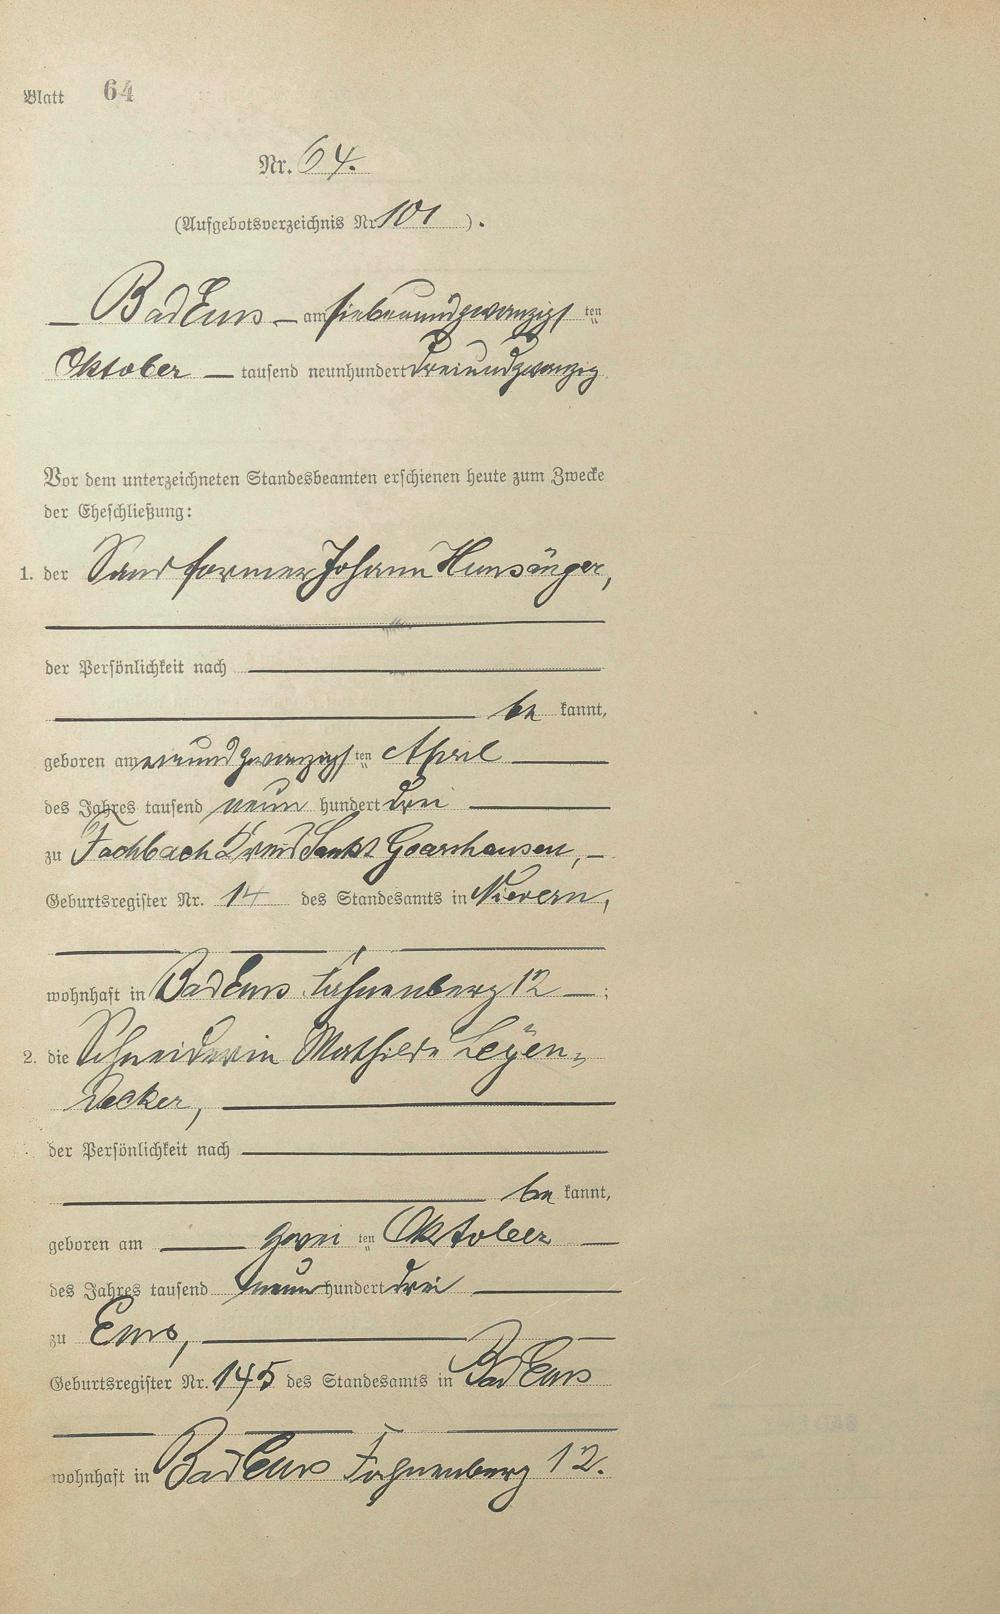 Blatt 64
Nr. 64.
(Aufgebotsverzeichnis Nr. 101 ).
Bad Ems — am siebenundzwanzigsten
Oktober — tausend neunhundert dreiundzwanzig
Vor dem unterzeichneten Standesbeamten erschienen heute zum Zwecke
der Eheschließung:
1. der Sandformer Johann Hunsänger,
der Persönlichkeit nach
be kannt,
geboren am einundzwanzigsten April
des Jahres tausend neun hundert drei
zu Fachbach Kreis Sankt Goarshausen, —
Geburtsregister Nr. 14 des Standesamts in Nievern,
wohnhaft in Bad Ems Fahnenberg 12 — ;
2. die Schneiderin Mathilde Leyen-
decker,
der Persönlichkeit nach
be kannt,
geboren am — zwei ten Oktober —
des Jahres tausend neun hundert drei
zu Ems,
Geburtsregister Nr. 145 des Standesamts in Bad Ems
wohnhaft in Bad Ems Fahnenberg 12.